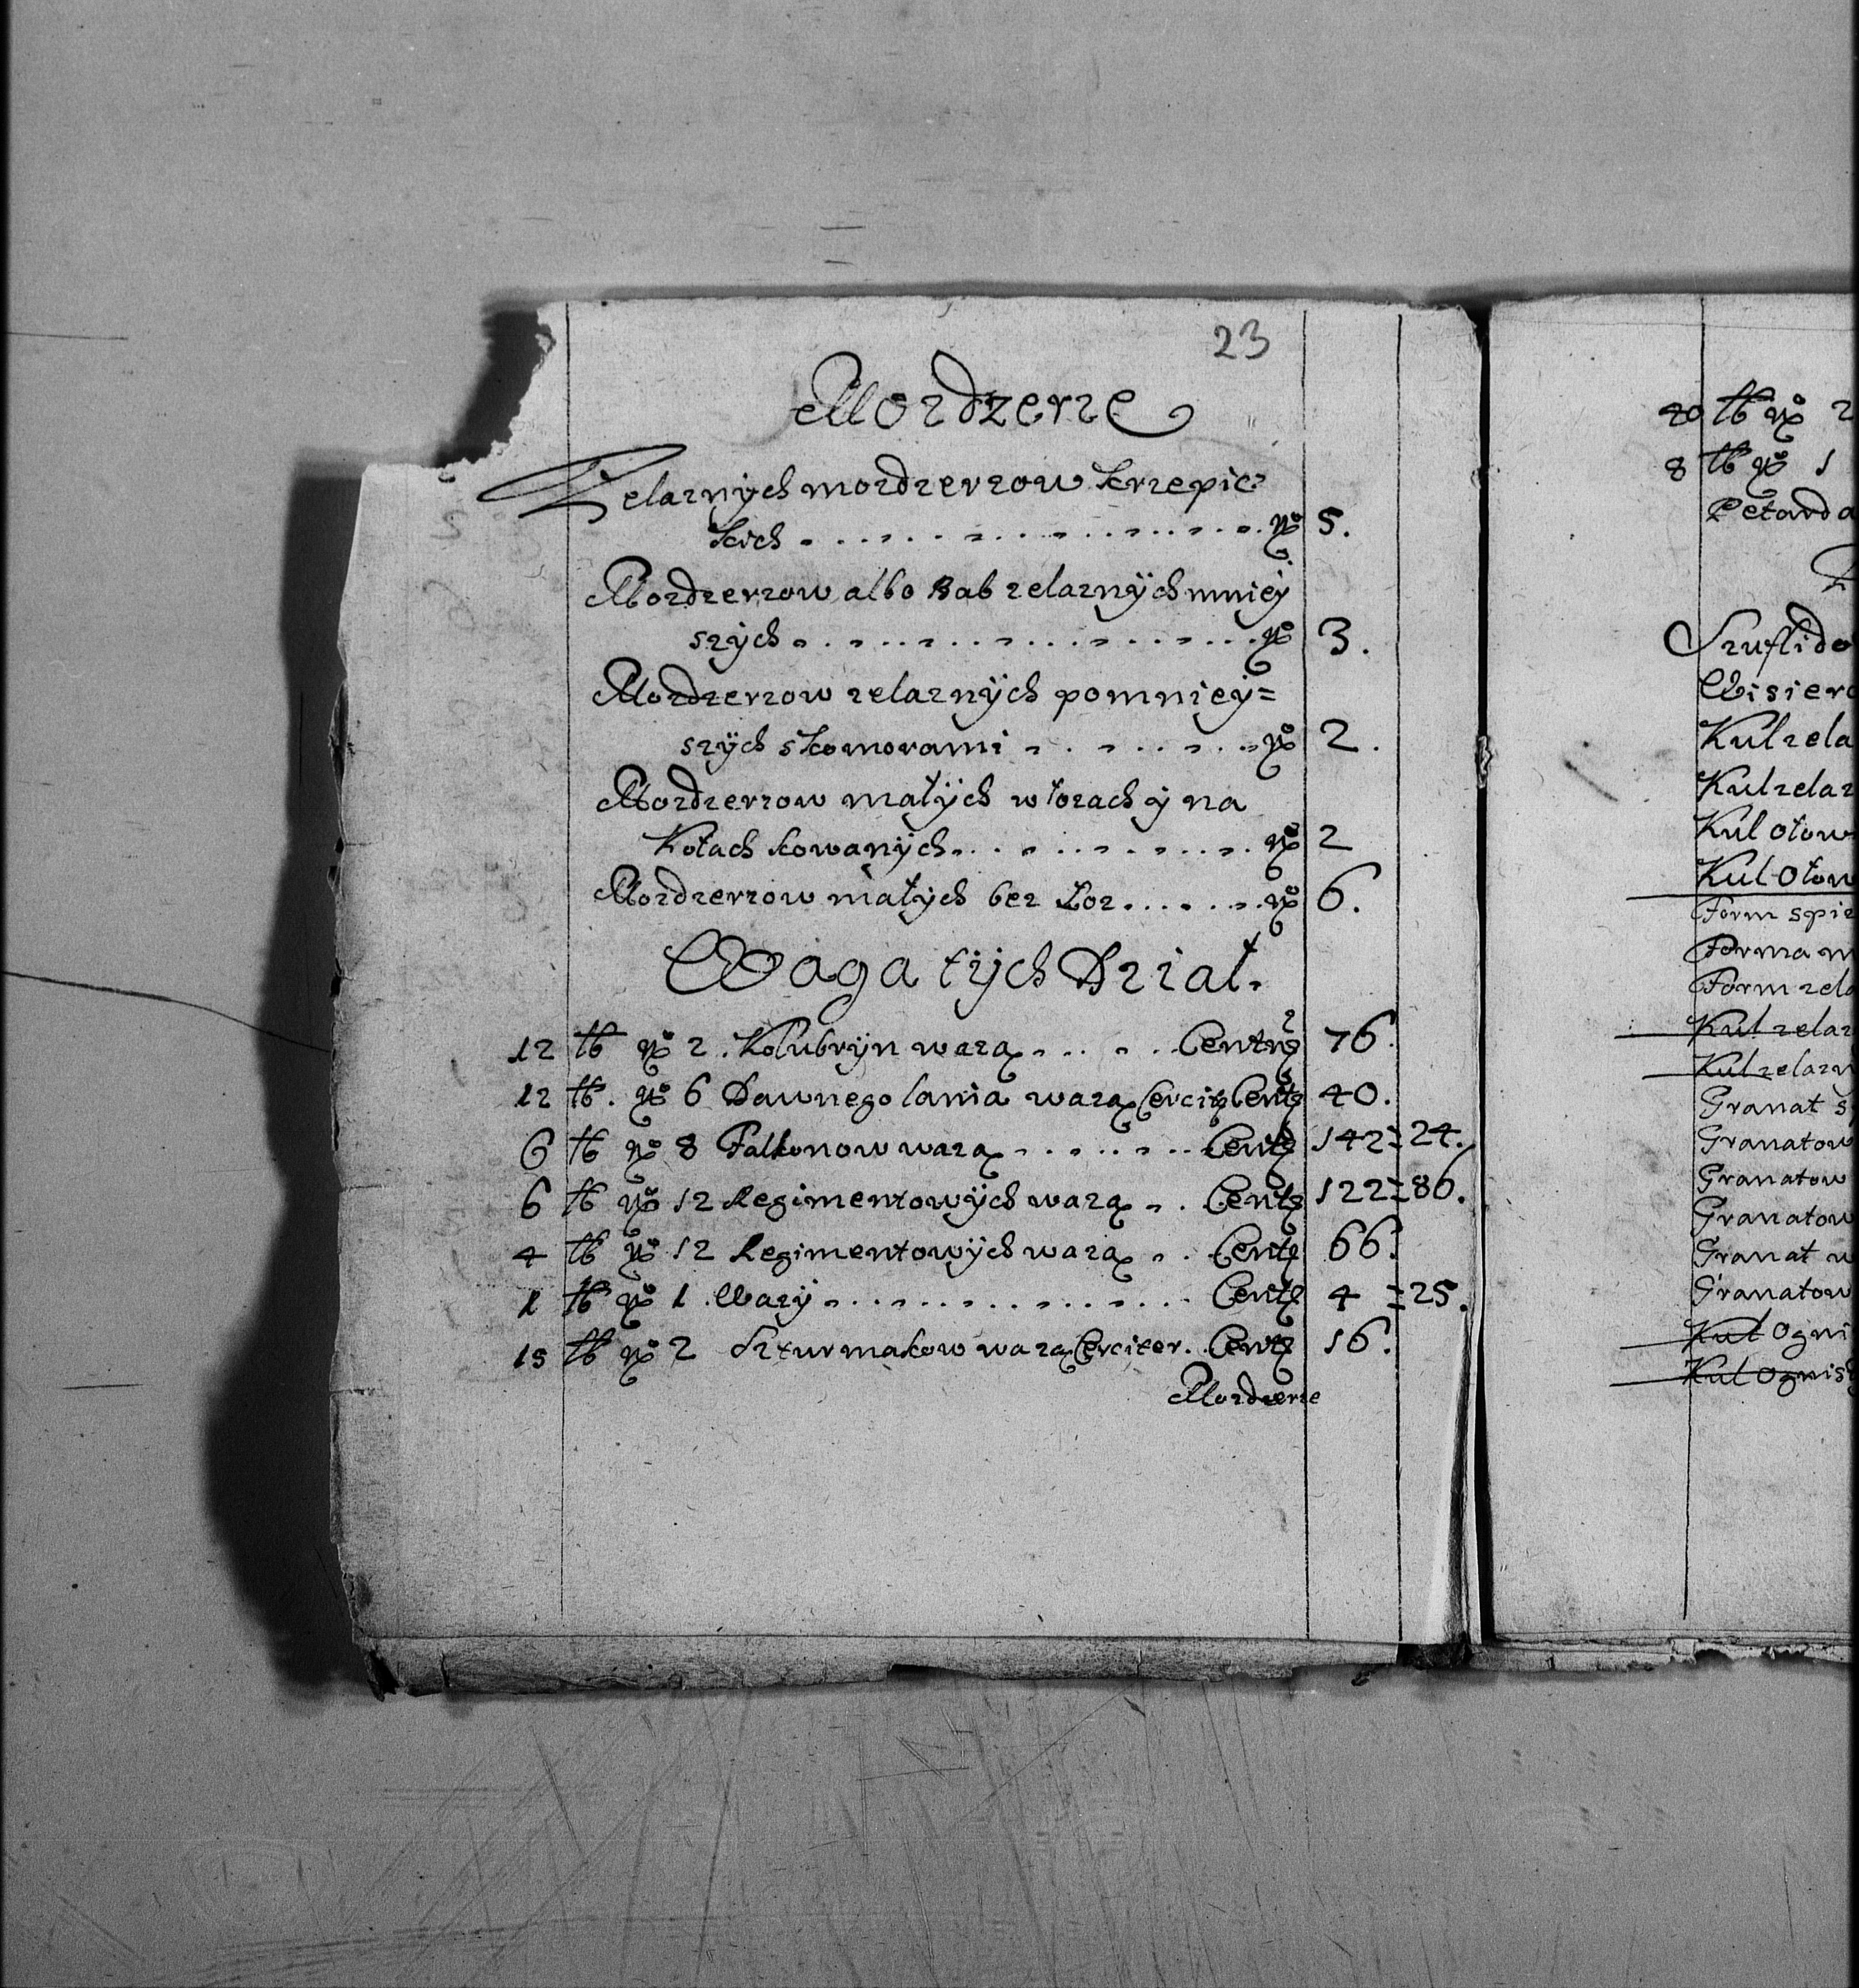 23
Mozdzerze
Zelaznÿch mozdzerzow krzepic=
kich . . . . . . . . . . . . . . . . No 5.
Mozdzerzow albo Bab zelaznÿch mnieÿ
szÿch . . . . . . . . . . . . . . . . No 3.
Mozdzerzow zelaznÿch pomnieÿ=
szÿch skomorami . . . . . . . No 2.
Mozdzerzow małÿch w łozach ÿ na
Kołach kowanÿch . . . . . . . . . No 2
Mozdzerzow małÿch bez Łoz . . . . . . No 6.
Waga tÿch Dział.
12 ℔ No 2. Kolubrÿn waza . . . . . Centn 76.
12 ℔. No 6 Dawnego lania waza Cercit Cent 40.
6 ℔ No 8 Falkonow waza . . . . . . . Cent 142=24.
6 ℔ No 12 Regimentowÿch wazą . . Cent 122=86.
4 ℔ No 12 Regimentowÿch wazą . . Cent 66.
1 ℔ No 1. Wazÿ . . . . . . . . . . . . . . Cent 4 =25.
15 ℔ No 2 Szturmakow wazą Cerciter. Cent 16.
Mozdzerze
20 ℔ No 2
8 ℔ No 1
Petarda
Szufli do
Wisiero
Kul zela
Kul zelaz
Kul ołow
Kul Ołow
Form spiz
Forma m
Form zela
Kul zelaz
Kul zelazn
Granat s
Granatow
Granatow
Granatow
Granat w
Granatow
Kul Ogni
Kul Ognis